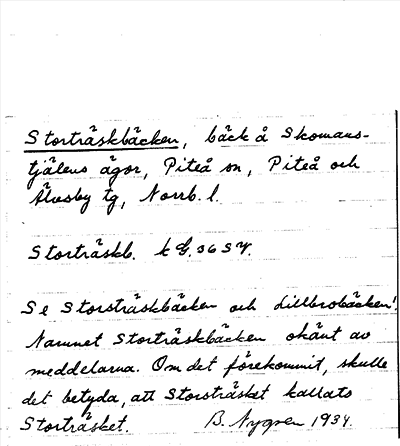 Storträskbäcken, bäck å Skomans-
tjälens ägor, Piteå sn, Piteå och
Älvsby tg, Norrb. l.
Storträskb. k G. 36 SV.
Se Storsträskbäcken och Lillbrobäcken!
Namnet Storträskbäcken okänt av
meddelarna. Om det förekommit, skulle
det betyda, att Storsträsket kallats
Storträsket. B. Nygren 1934.